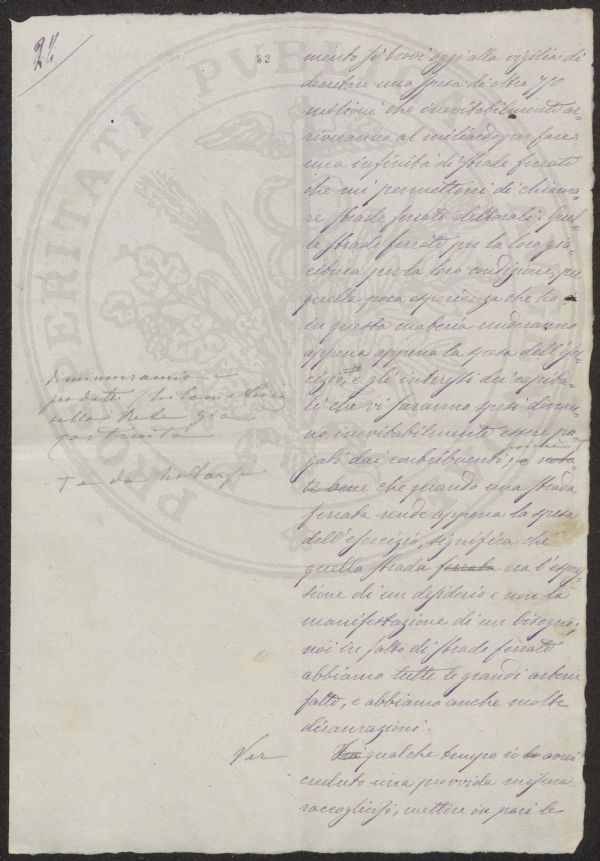 24
82
mento si trovi oggi alla vigilia di
decretare una spesa di oltre 770
milioni che inevitabilmente ar-
riveranno al miliardo per fare
una infinità di strade ferrate
che mi permetterei di chiama-
re strade ferrate elettorali. Quel-
le strade ferrate per la loro gia-
citura per la loro condizione, per
quella poca esperienza che ho
in questa materia renderanno
appena appena la spesa dell'eser-
cizio, e gli interessi dei capita-
li che vi saranno spesi dovran-
no inevitabilmente essere pa-
gati dai contribuenti; e nota-
te bene che quando una strada
ferrata rende appena la spesa
dell'esercizio, significa che
quella strada ferrata era l'espres-
sione di un desiderio e non la
manifestazione di un bisogno;
noi in fatto di strade ferrate
abbiamo tutte le grandi arterie
fatte, e abbiamo anche molte
diramazioni.
qualche tempo io avrei
creduto una provvida misura
raccogliersi, mettere in pari le
diminuiranno i
prodotti
della Rete già
costruita
e da notarsi
Per
PROSPERITATI PUBLICAE